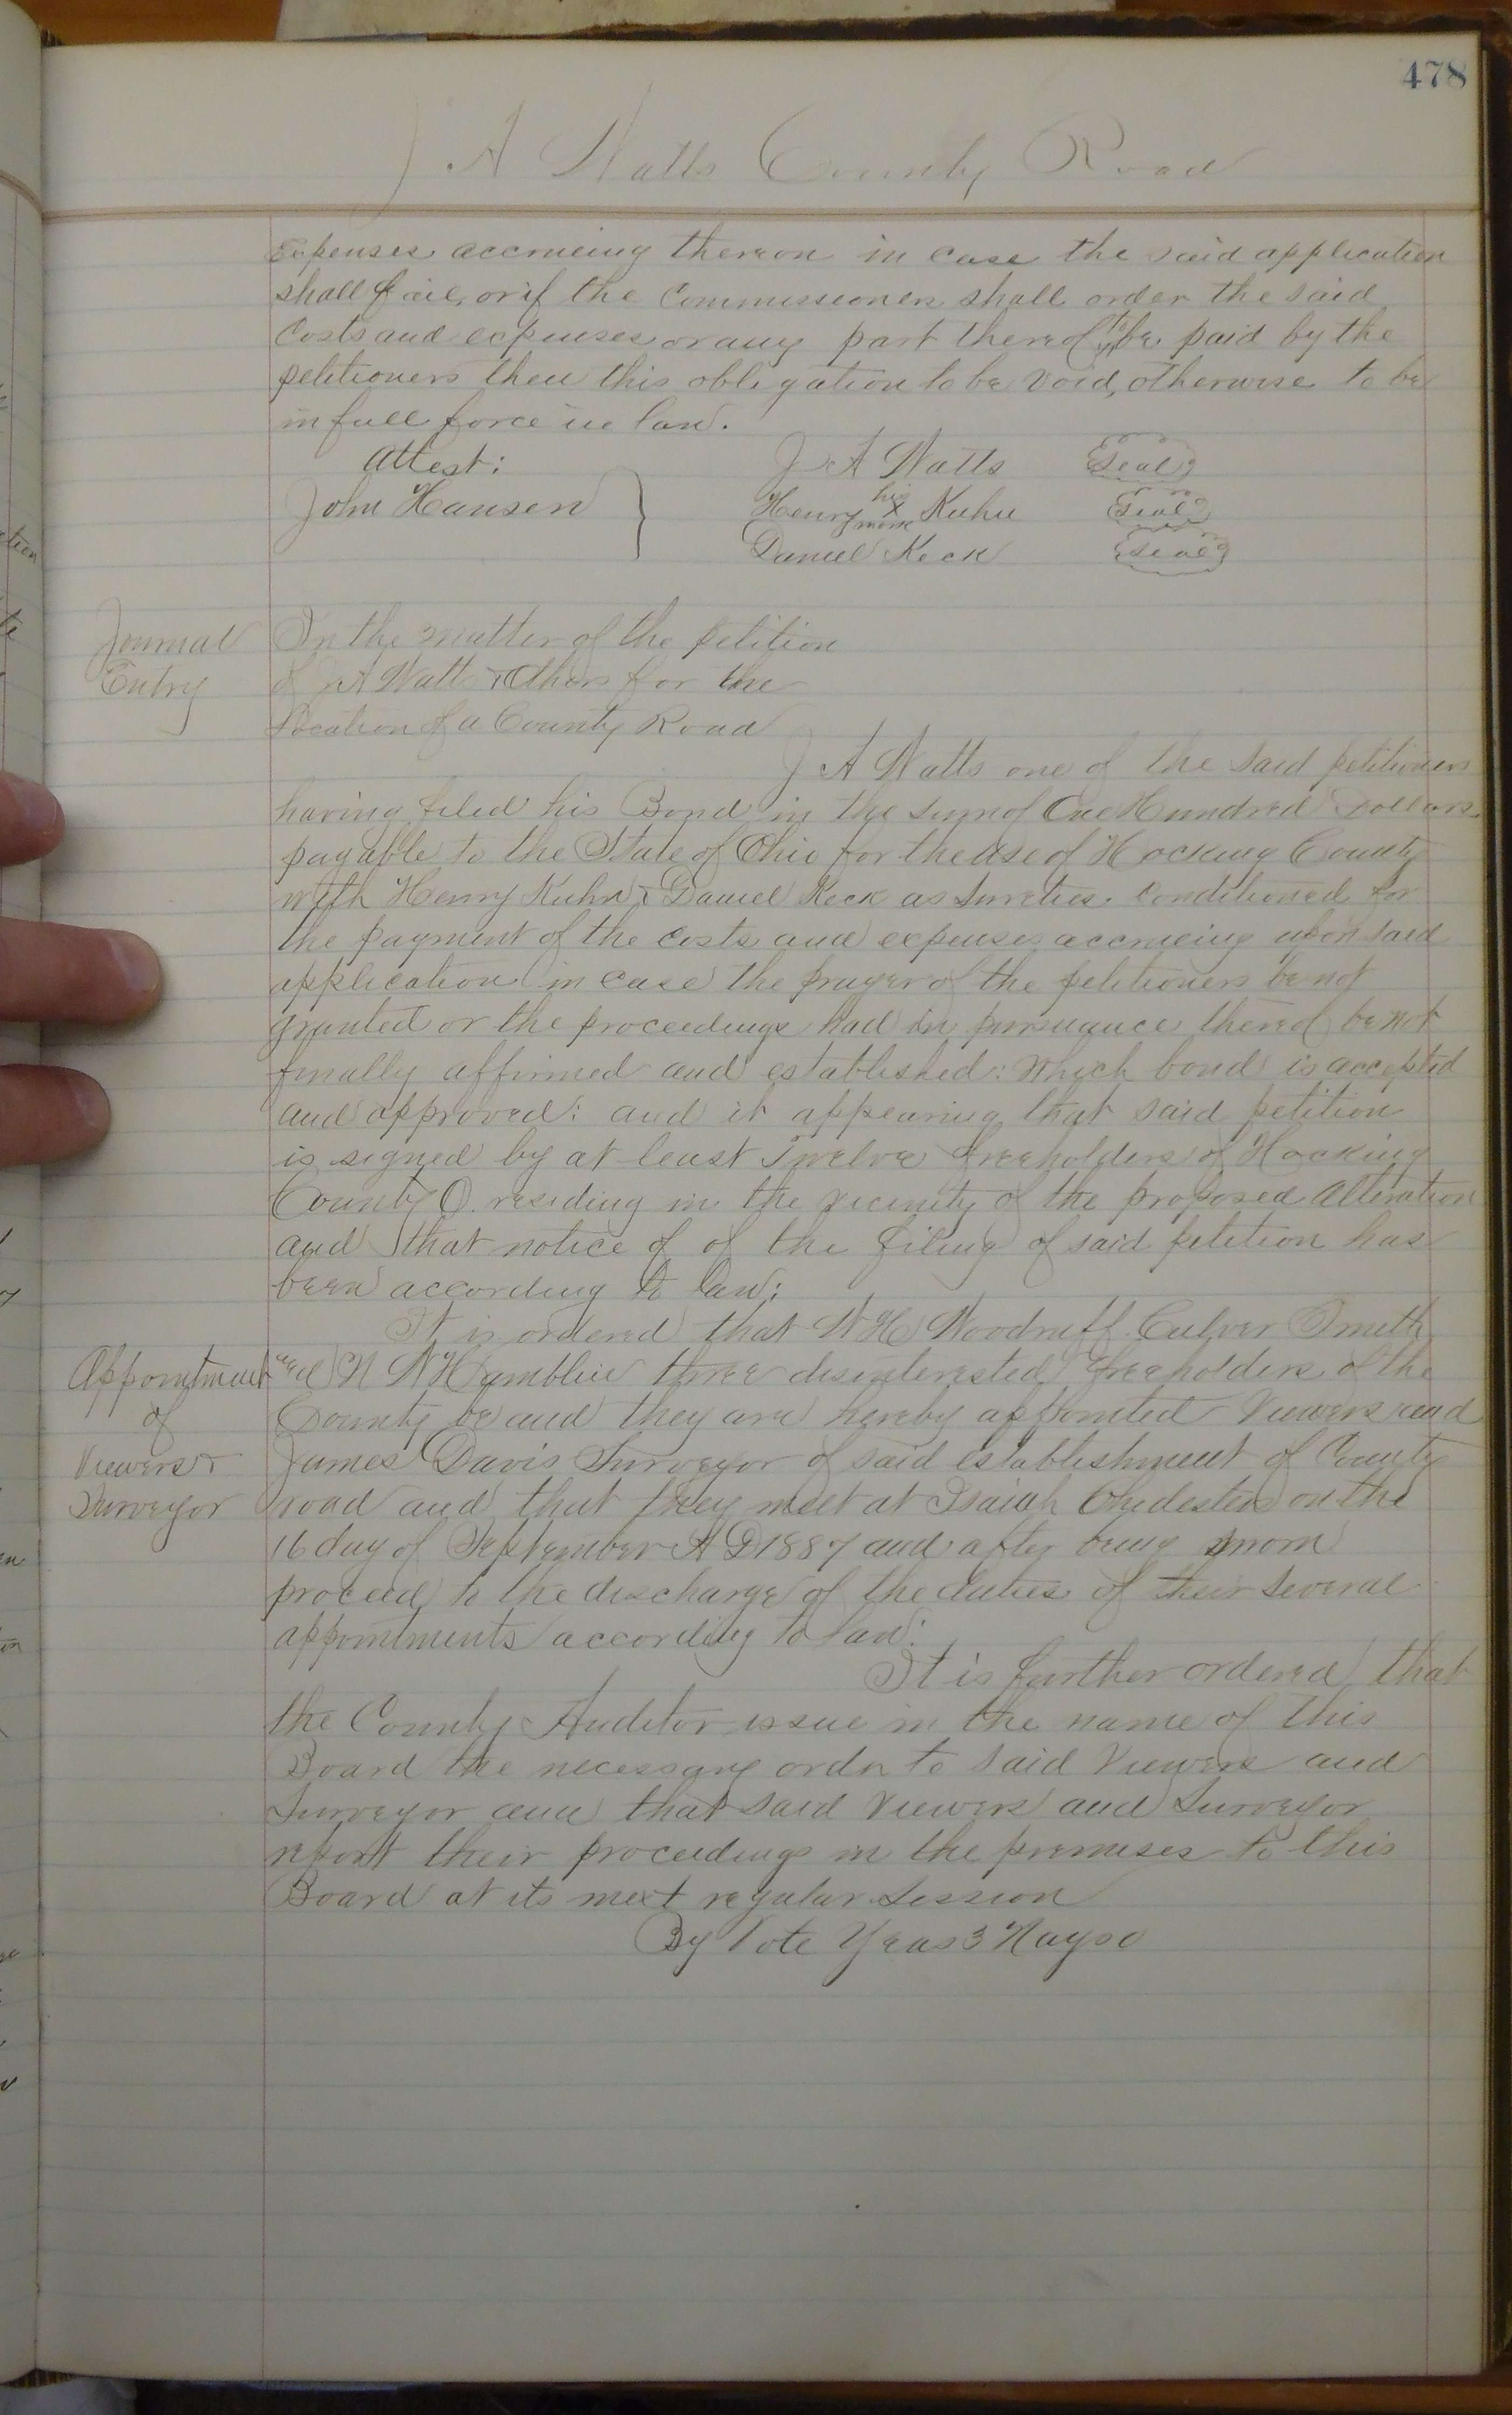 478
J A Watts County Road
Expenses accrueing thereon in case the said application
shall fail, or if the Commissioners shall order the said
Costs and expenses or any part thereof to be paid by the
petitioners then this obligation to be void, otherwise to be
in full force in law.
Attest:
John Hansen
J A Watts Seal
Henry his X mark Kuhn Seal
Daniel Keck Seal
Journal
Entry
In the matter of the petition
of J A Watts & Others for the
Location of a County Road
J A Watts one of the said petitioners
having filed his Bond in the sum of One Hundred Dollars
payable to the State of Ohio for the use of Hocking County
with Henry Kuhn & Daniel Keck as Sureties. Conditioned for
the payment of the costs and expenses accrueing upon said
application in case the prayer of the petitioners be not
granted or the proceedings had in pursuance thereof be not
finally affirmed and established: which bond is accepted
and approved: and it appearing that said petition
is signed by at least Twelve freeholders of Hocking
County O. residing in the vicinity of the proposed Alteration
and that notice of of the filing of said petition has
been according to law:
It is ordered that W H Woodruff. Culver Smith
Appointment
of
Viewers &
Surveyor
and N W Hamblin three disinterested freeholders of the
County be and they are hereby appointed Viewers and
James Davis Surveyor of said establishment of County
road and that they meet at Isaiah Chidesters on the
16 day of September A D 1887 and after being sworn
proceed to the discharge of the duties of their several
appointments according to law:
It is further ordered that
the County Auditor issue in the name of this
Board the necessary order to said Viewers and
Surveyor and that said Viewers and Surveyor
report their proceedings in the premises to this
Board at its next regular Session
By Vote Yeas 3 Nays 0